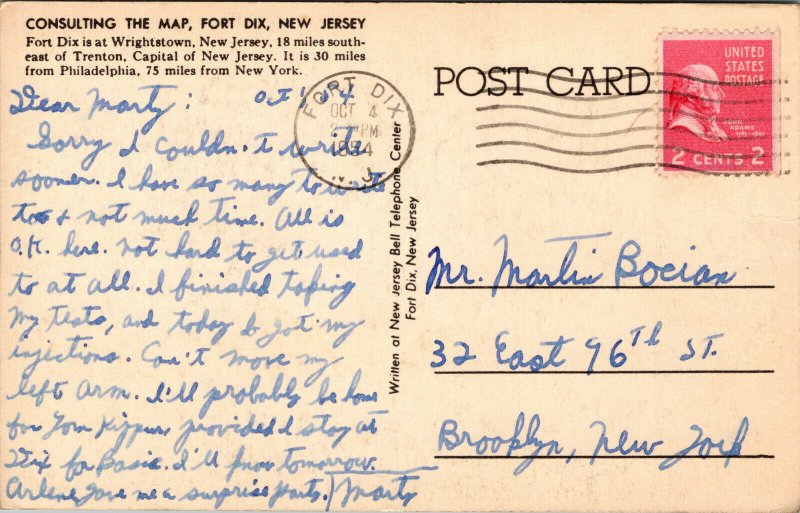 CONSULTING THE MAP, FORT DIX, NEW JERSEY
Fort Dix is at Wrightstown, New Jersey, 18 miles south-
east of Trenton, Capital of New Jersey. It is 30 miles
from Philadelphia, 75 miles from New York.
Dear Marty:
Sorry I couldn't write
sooner. I have so many to write
too & not much time. All is
O.K. here. Not hard to get used
to at all. I finished taking
my tests, and today I got my
injections. Can't move my
left arm. I'll probably be home
for Yom Kippur, provided I stay at
Dix for Basic. I'll know tomorrow.
Arlene gave me a surprise party. Marty
FORT DIX
OCT 4
PM
1954
N. J.
Written at New Jersey Bell Telephone Center
Fort Dix, New Jersey
POST CARD
UNITED
STATES
POSTAGE
JOHN
ADAMS
1797-1801
2 CENTS 2
Mr. Martin Bocian
32 East 96th St.
Brooklyn, New York